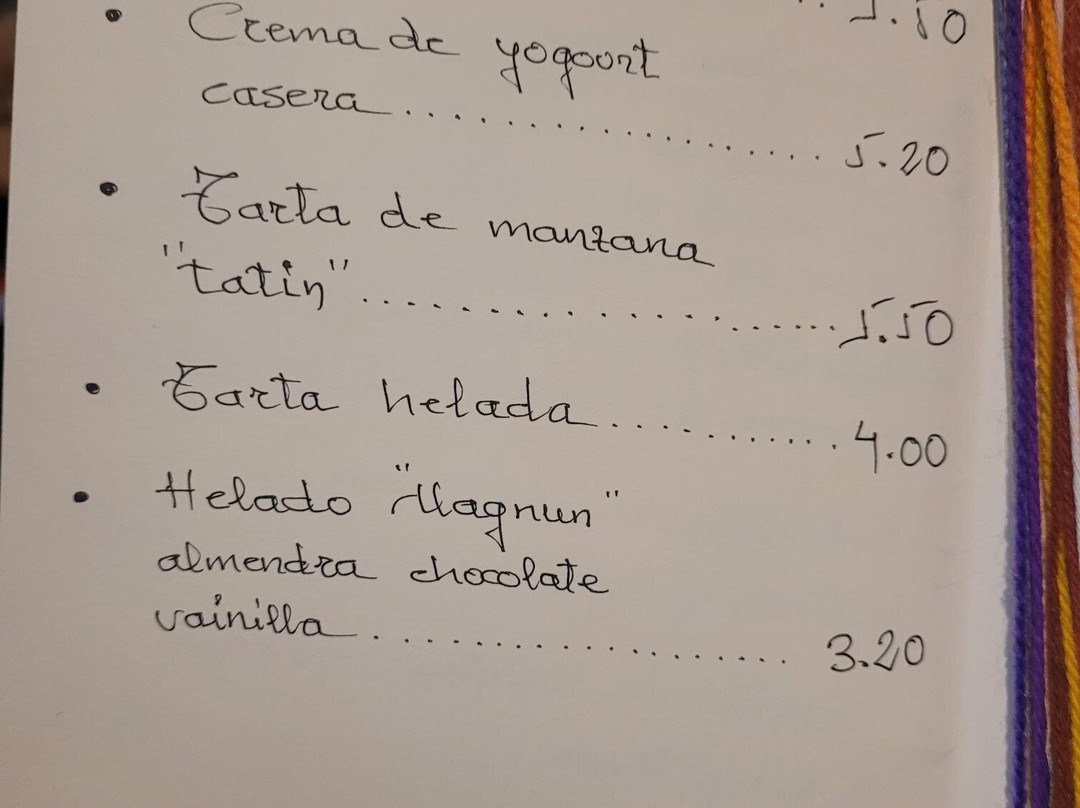 5.50
• Crema de yogourt
casera.................... 5.20
• Tarta de manzana
"tatin"......................5.50
• Tarta helada............4.00
• Helado "Magnun"
almendra chocolate
vainilla................... 3.20